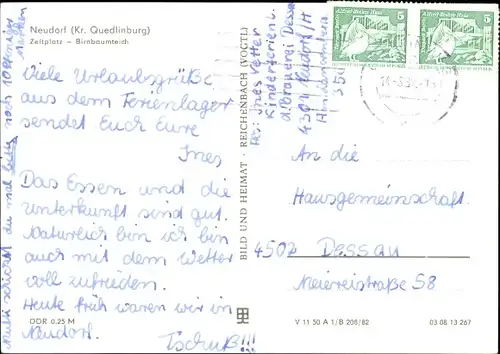 Neudorf (Kr. Quedlinburg)
Zeltplatz – Birnbaumteich
Viele Urlaubsgrüße
aus dem Ferienlager
sendet Euch Eure
Ines
Das Essen und die
Unterkunft sind gut.
Natürlich bin ich
auch mit dem Wetter
voll zufrieden.
Heute früh waren wir in
Neudorf.
Tschüß!!!
Mutti schick du mal bitte noch 10
Marken
DDR 0,25 M
BILD UND HEIMAT · REICHENBACH (VOGTL)
Abs: Ines Vetter
Kinderferienl.
d. Brauerei Dessau
4301 Neudorf/H
350
An die
Hausgemeinschaft
4502 Dessau
Meiereistraße 58
V 11 50 A 1/B 206/82
03 08 13 267
5
5